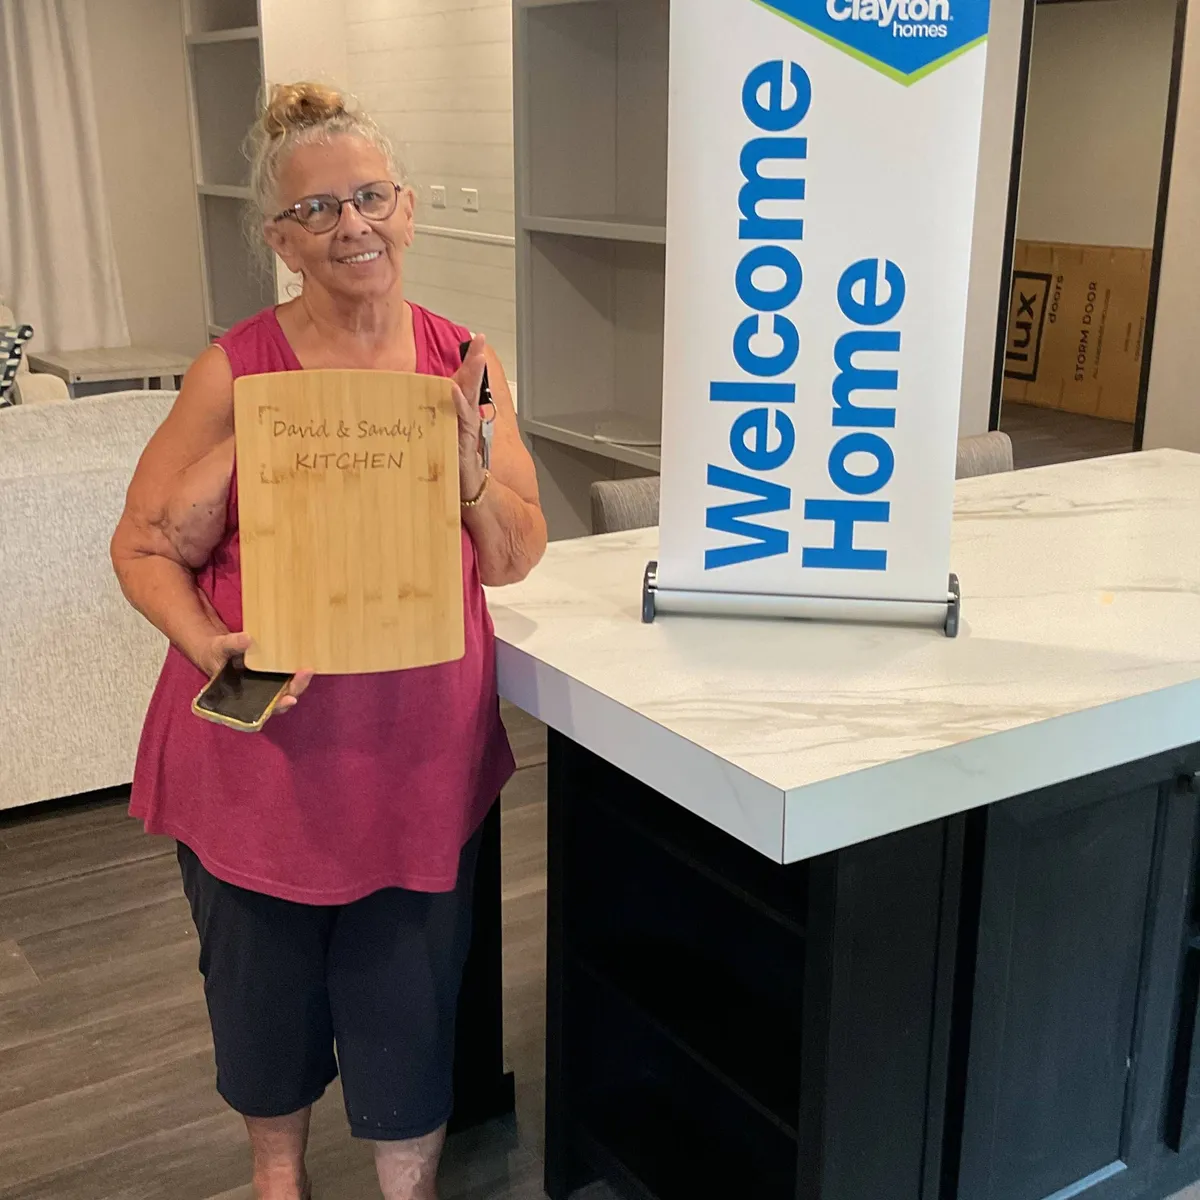 David & Sandy's
KITCHEN
Clayton
homes
Welcome
Home
lux
doors
STORM DOOR